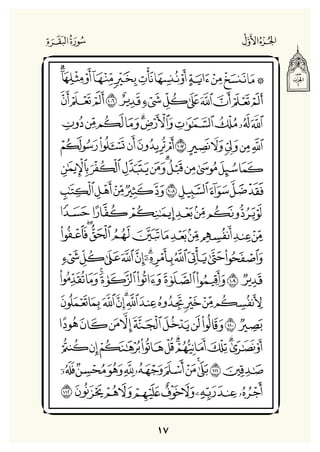 الجُزْءُ الأَوَّلُ سُورَةُ البَقَرَةِ
۞ مَا نَنسَخْ مِنْ ءَايَةٍ أَوْ نُنسِهَا نَأْتِ بِخَيْرٍ مِّنْهَآ أَوْ مِثْلِهَآۗ
أَلَمْ تَعْلَمْ أَنَّ ٱللَّهَ عَلَىٰ كُلِّ شَىْءٍ قَدِيرٌ ١٠٦ أَلَمْ تَعْلَمْ أَنَّ
ٱللَّهَ لَهُۥ مُلْكُ ٱلسَّمَٰوَٰتِ وَٱلْأَرْضِۗ وَمَا لَكُم مِّن دُونِ
ٱللَّهِ مِن وَلِىٍّ وَلَا نَصِيرٍ ١٠٧ أَمْ تُرِيدُونَ أَن تَسْـَٔلُوا۟ رَسُولَكُمْ
كَمَا سُئِلَ مُوسَىٰ مِن قَبْلُۗ وَمَن يَتَبَدَّلِ ٱلْكُفْرَ بِٱلْإِيمَٰنِ
فَقَدْ ضَلَّ سَوَآءَ ٱلسَّبِيلِ ١٠٨ وَدَّ كَثِيرٌ مِّنْ أَهْلِ ٱلْكِتَٰبِ
لَوْ يَرُدُّونَكُم مِّنۢ بَعْدِ إِيمَٰنِكُمْ كُفَّارًا حَسَدًا
مِّنْ عِندِ أَنفُسِهِم مِّنۢ بَعْدِ مَا تَبَيَّنَ لَهُمُ ٱلْحَقُّۖ فَٱعْفُوا۟
وَٱصْفَحُوا۟ حَتَّىٰ يَأْتِىَ ٱللَّهُ بِأَمْرِهِۦٓۗ إِنَّ ٱللَّهَ عَلَىٰ كُلِّ شَىْءٍ
قَدِيرٌ ١٠٩ وَأَقِيمُوا۟ ٱلصَّلَوٰةَ وَءَاتُوا۟ ٱلزَّكَوٰةَۚ وَمَا تُقَدِّمُوا۟
لِأَنفُسِكُم مِّنْ خَيْرٍ تَجِدُوهُ عِندَ ٱللَّهِۗ إِنَّ ٱللَّهَ بِمَا تَعْمَلُونَ
بَصِيرٌ ١١٠ وَقَالُوا۟ لَن يَدْخُلَ ٱلْجَنَّةَ إِلَّا مَن كَانَ هُودًا
أَوْ نَصَٰرَىٰۗ تِلْكَ أَمَانِيُّهُمْۗ قُلْ هَاتُوا۟ بُرْهَٰنَكُمْ إِن كُنتُمْ
صَٰدِقِينَ ١١١ بَلَىٰ مَنْ أَسْلَمَ وَجْهَهُۥ لِلَّهِ وَهُوَ مُحْسِنٌ فَلَهُۥٓ
أَجْرُهُۥ عِندَ رَبِّهِۦ وَلَا خَوْفٌ عَلَيْهِمْ وَلَا هُمْ يَحْزَنُونَ ١١٢
١٧